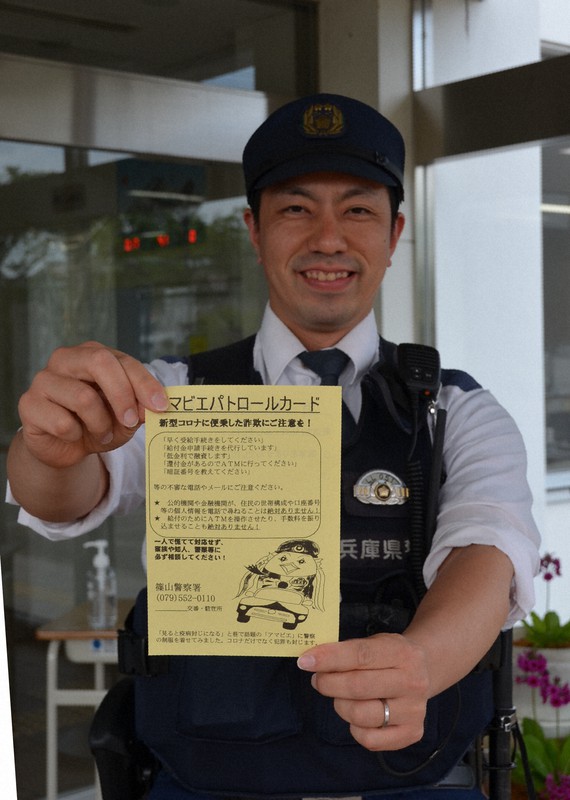 アマビエパトロールカード
新型コロナに便乗した詐欺にご注意を！
「早く受給手続きをしてください」
「給付金申請手続きを代行しています」
「低金利で融資します」
「還付金があるのでＡＴＭに行ってください」
「暗証番号を教えてください」
等の不審な電話やメールにご注意ください。
★ 公的機関や金融機関が、住民の世帯構成や口座番号
等の個人情報を電話で尋ねることは絶対ありません！
★ 給付のためにＡＴＭを操作させたり、手数料を振り
込ませることも絶対ありません！
一人で慌てて対応せず、
家族や知人、警察等に
必ず相談してください！
篠山警察署
(079)552-0110
交番・駐在所
「見ると疫病封じになる」と巷で話題の「アマビエ」に警察
の制服を着せてみました。コロナだけでなく犯罪も封じます。
兵庫県